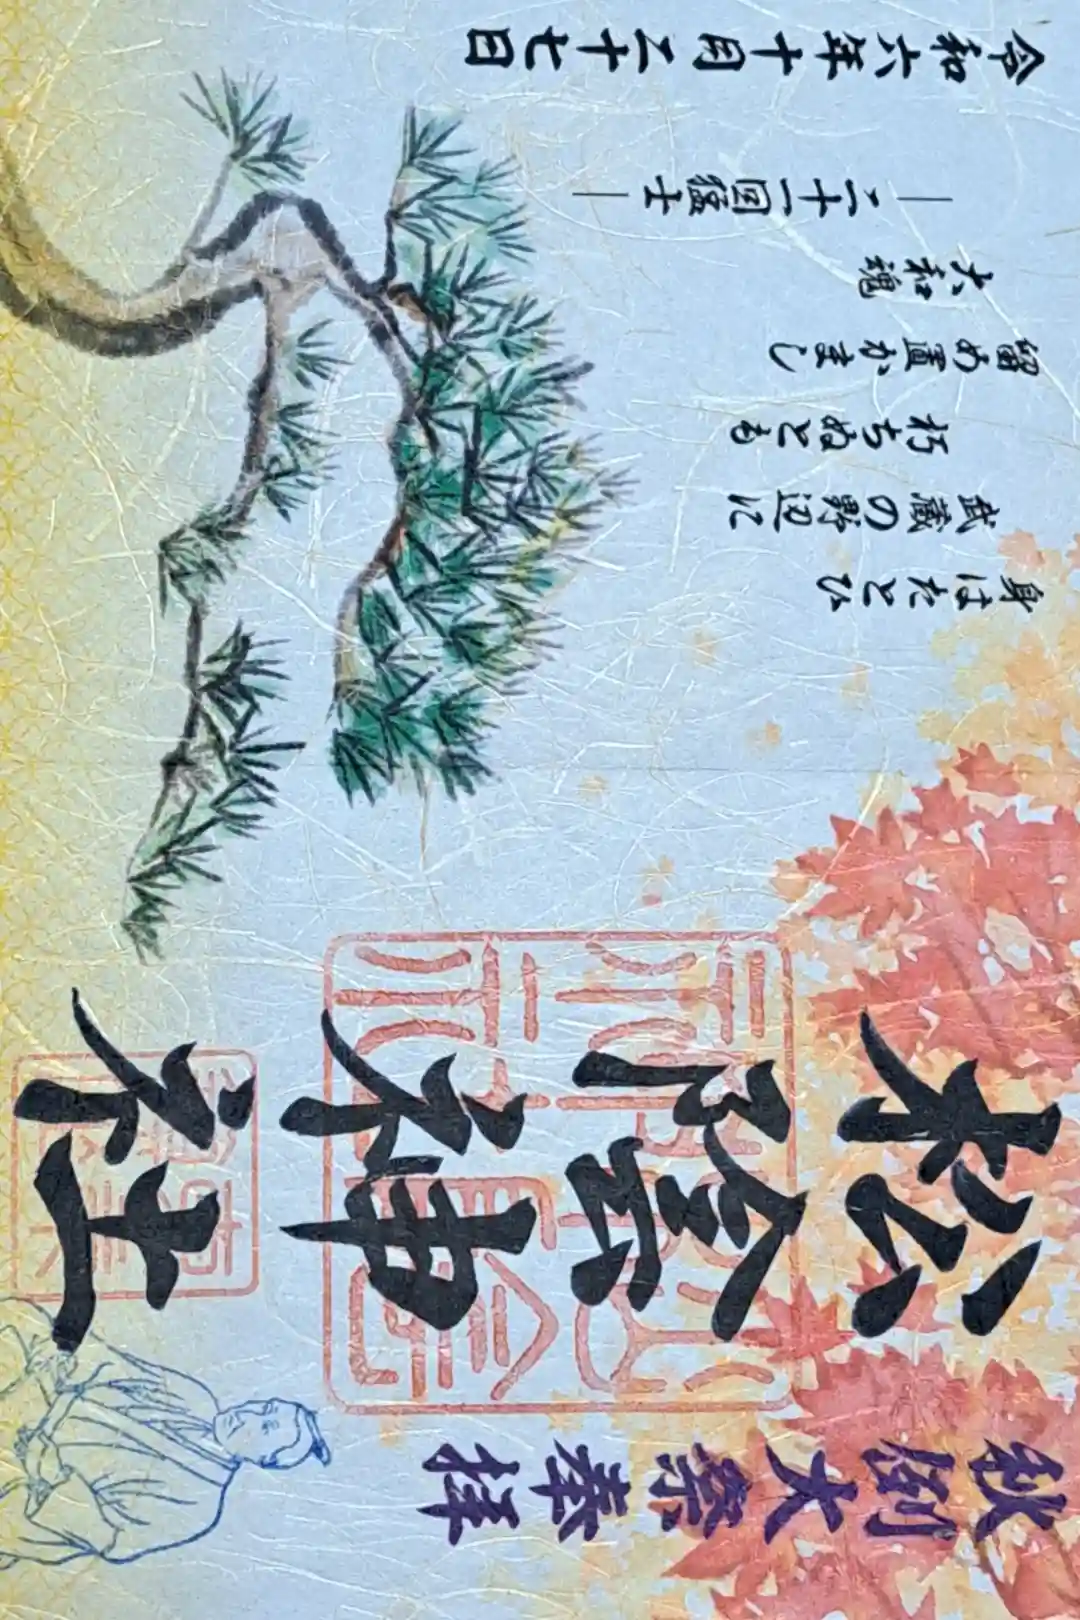 秋例大祭奉拝
松陰神社
身はたとひ
武蔵の野辺に
朽ちぬとも
留め置かまし
大和魂
二十一回猛士
令和六年十月二十七日